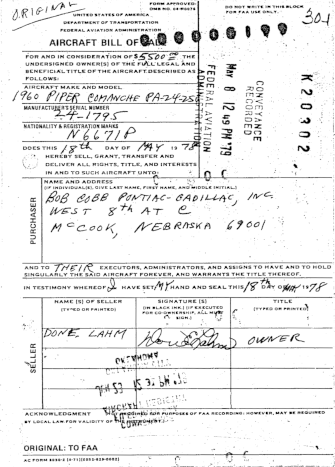 ORIGINAL
FORM APPROVED:
DO NOT WRITE IN THIS BLOCK
FOR FAA USE ONLY.
301
UNITED STATES OF AMERICA
DEPARTMENT OF TRANSPORTATION
FEDERAL AVIATION ADMINISTRATION
AIRCRAFT BILL OF
FOR AND IN CONSIDERATION OF $5500.00 THE
UNDERSIGNED OWNER(S) OF THE FULL LEGAL AND
BENEFICIAL TITLE OF THE AIRCRAFT DESCRIBED AS
FOLLOWS:
AIRCRAFT MAKE AND MODEL
1960 PIPER COMANCHE PA-24-250
MANUFACTURER'S SERIAL NUMBER
24-1795
NATIONALITY & REGISTRATION MARKS
N6671P
CONVEYANCE
RECORDED
MAY 8 12 49 PM '79
FEDERAL AVIATION
ADMINISTRATION
K20302
DOES THIS 18th DAY OF MAY 1978
HEREBY SELL, GRANT, TRANSFER AND
DELIVER ALL RIGHTS, TITLE, AND INTERESTS
IN AND TO SUCH AIRCRAFT UNTO:
PURCHASER
NAME AND ADDRESS
(IF INDIVIDUAL(S), GIVE LAST NAME, FIRST NAME, AND MIDDLE INITIAL.)
BOB COBB PONTIAC-CADILLAC, INC.
WEST 8th AT C
McCOOK, NEBRASKA 69001
AND TO THEIR EXECUTORS, ADMINISTRATORS, AND ASSIGNS TO HAVE AND TO HOLD
SINGULARLY THE SAID AIRCRAFT FOREVER, AND WARRANTS THE TITLE THEREOF.
IN TESTIMONY WHEREOF I HAVE SET MY HAND AND SEAL THIS 18th DAY OF MAY 1978
SELLER
NAME (S) OF SELLER
(TYPED OR PRINTED)
SIGNATURE (S)
(IN BLACK INK.) (IF EXECUTED
FOR CO-OWNERSHIP, ALL MUST
SIGN.)
TITLE
(TYPED OR PRINTED)
DON E. LAHM
Don E Lahm
OWNER
OKLAHOMA
ACKNOWLEDGMENT (NOT REQUIRED FOR PURPOSES OF FAA RECORDING: HOWEVER, MAY BE REQUIRED
BY LOCAL LAW FOR VALIDITY OF THE INSTRUMENT.)
ORIGINAL: TO FAA